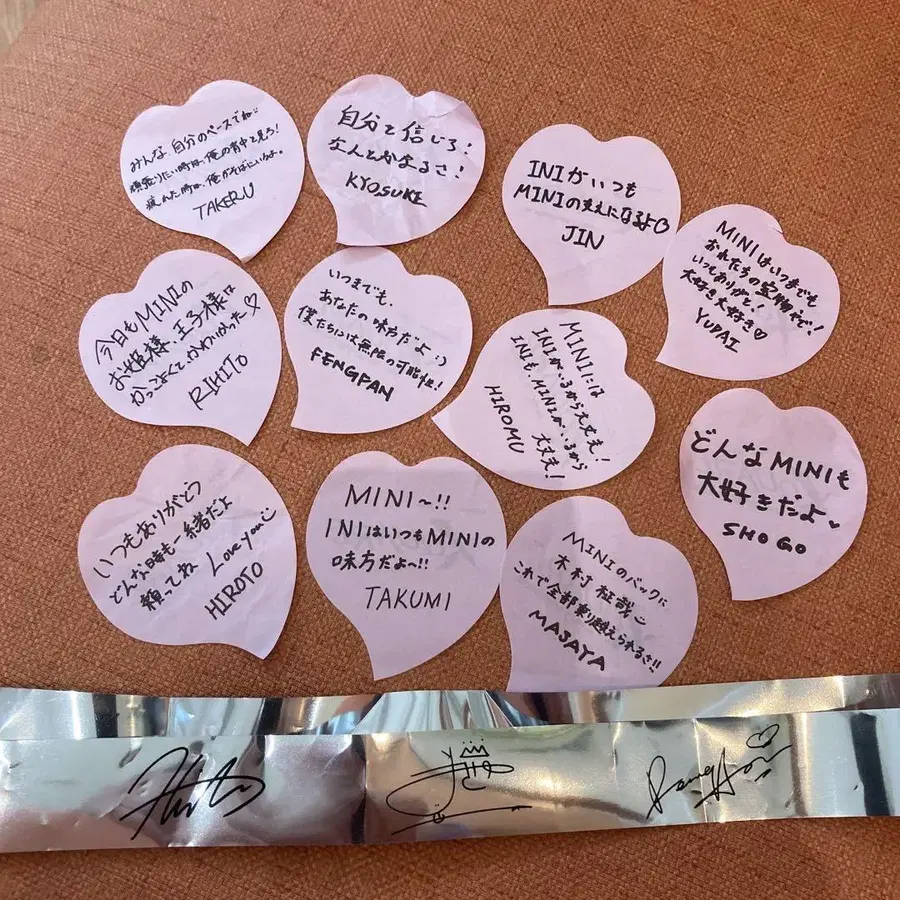 みんな、自分のペースでね
頑張りたい時は、俺の背中を見ろ!
疲れた時は、俺がそばにいるよ。
TAKERU
自分を信じろ!
なんとかなるさ!
KYOSUKE
INIがいつも
MINIの支えになるよ♡
JIN
MINIはいつまでも
おれたちの宝物やで!
いつもありがと!
大好き大好き♡
YUDAI
今日もMINIの
お姫様、王子様は
かっこよくて、かわいかった♡
RIHITO
いつまでも、
あなたの味方だよ:)
僕たちには無限の可能性!
FENGFAN
MINIには
INIがいるから大丈夫!
INIも、MINIがいるから
大丈夫!
HIROMU
どんなMINIも
大好きだよ♥
SHOGO
いつもありがとう
どんな時も一緒だよ
頼ってね Love you
HIROTO
MINI〜!!
INIはいつもMINIの
味方だよ〜!!
TAKUMI
MINIのバックに
木村柾哉
これで全部乗り越えられるさ!!
MASAYA